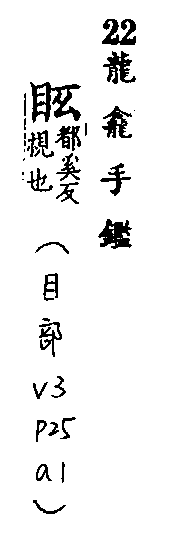 22龍龕手鑑
都奚反
視也
（目部
v3
p25
a1）